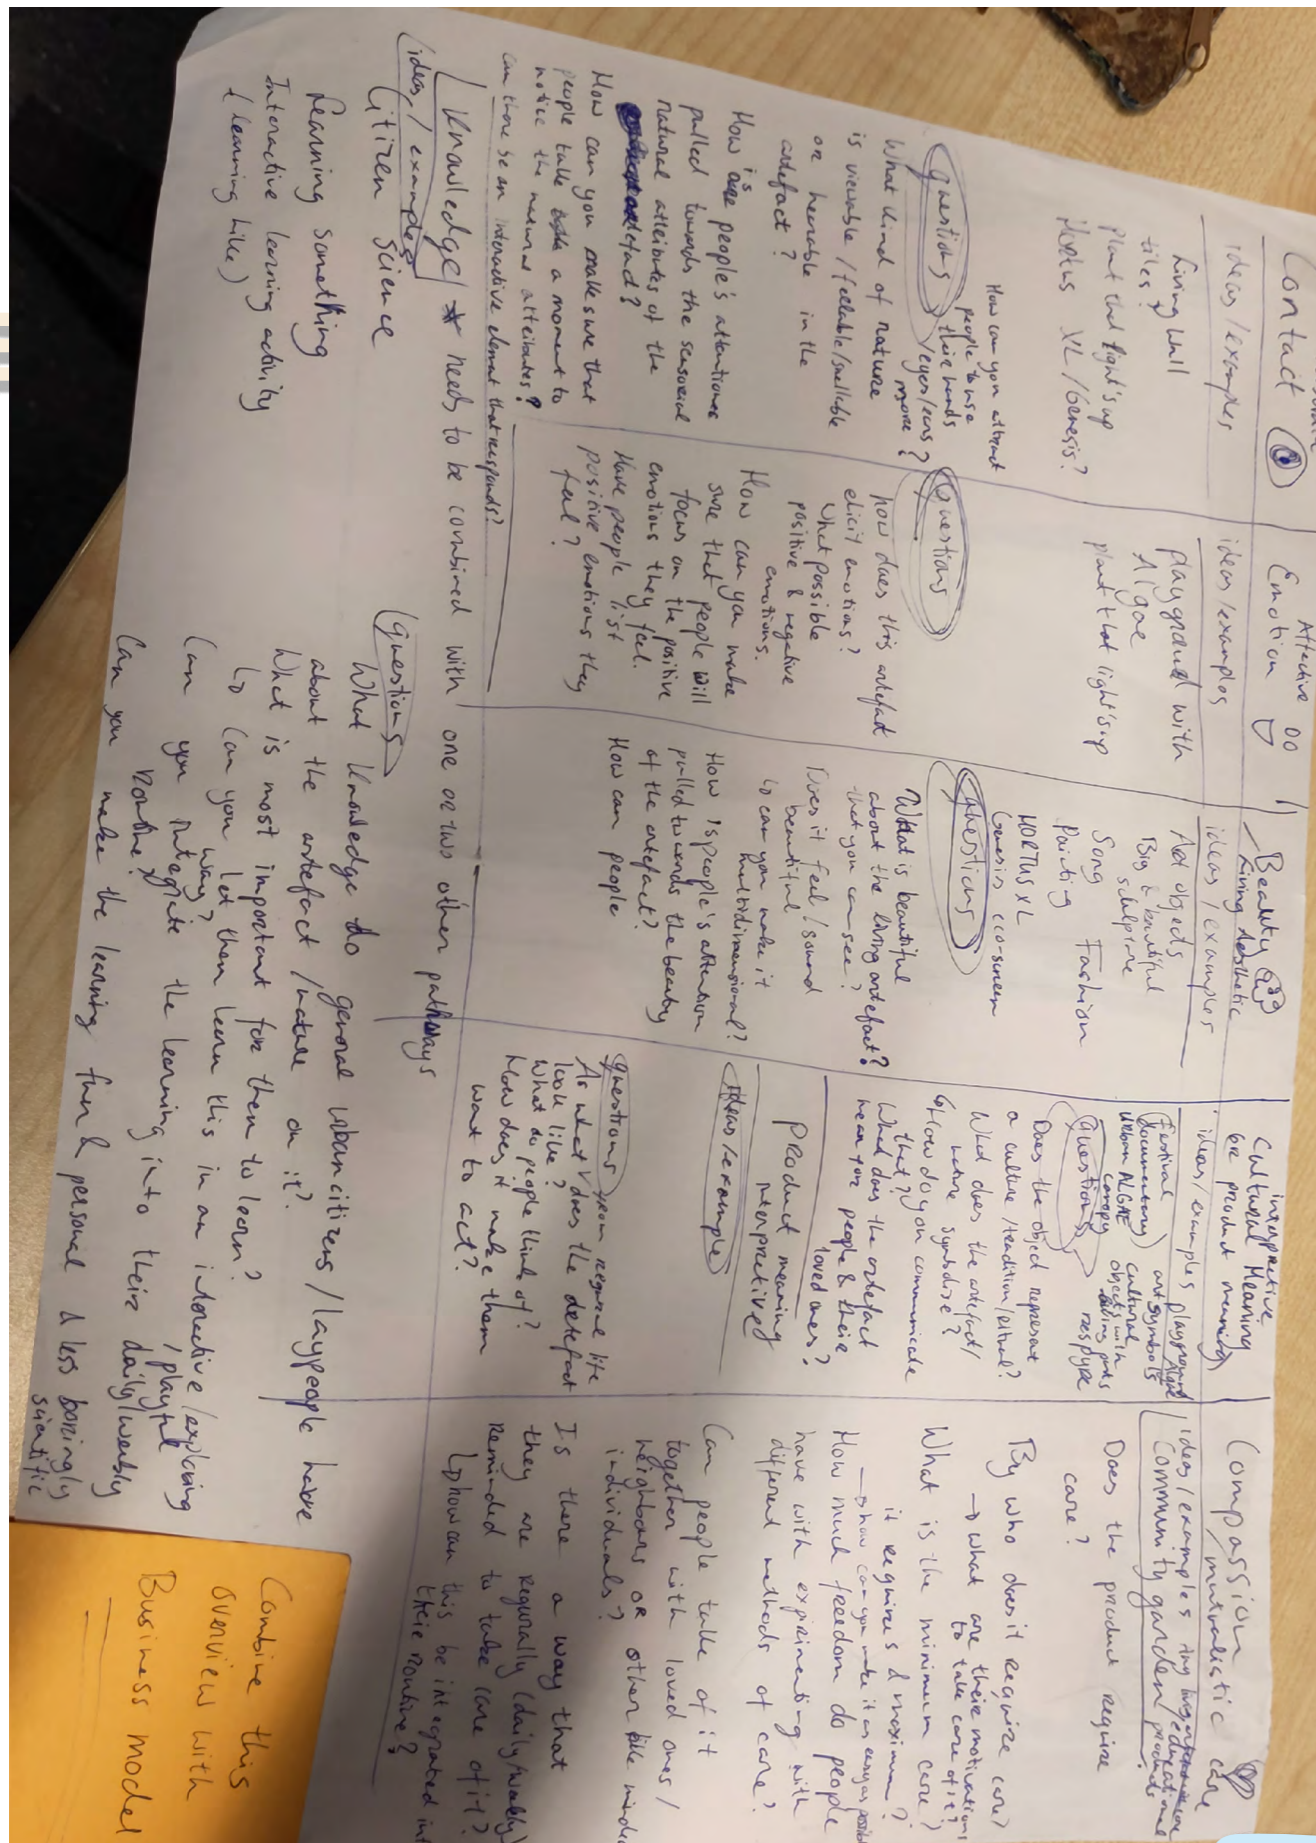 Contact
ideas/examples
Living wall
tiles?
plant that light's up
Hortus XL/Genesis?
How can you attract
people to use
their hands
/eyes/ears?
more?
questions
What kind of nature
is viewable/feelable/smellable
or hearable in the
artefact?
How is people's attention
pulled towards the sensorial
natural attributes of the
artefact?
How can you make sure that
people take a moment to
notice the natural attributes?
can there be an interactive element that responds?
Affective
Emotion
ideas/examples
playground with
Algae
plant that light's up
questions
how does this artefact
elicit emotions?
What possible
positive & negative
emotions.
How can you make
sure that people will
focus on the positive
emotions they feel.
Have people list
positive emotions they
feel?
Beauty
Living Aesthetic
ideas/examples
Art objects
Big & beautiful
sculpture
Song Fashion
Painting
HORTUS XL
Genesis eco-screen
questions
What is beautiful
about the living artefact?
that you can see?
Does it feel/sound
beautiful
Lo can you make it
multidimensional?
How is people's attention
pulled towards the beauty
of the artefact?
How can people
interpretive
Cultural Meaning
or product meaning
ideas/examples playground
Algae
Festival
(documentary) art symbols
urban ALGAE cultural
canopy objects with
living parts
questions
Does the object represent
a culture/tradition/ritual?
What does the artefact/
nature symbolize?
Lo How do you communicate
that?
What does the artefact
mean for people & their
loved ones?
Product meaning
interpretive
ideas/example
questions from regular life
As what does the artefact
look like?
What do people think of?
How does it make them
want to act?
Compassion
/mutualistic care
ideas/examples
Community garden
educational
products
Does the product require
care?
By who does it require care?
→ what are their motivations
to take care of it?
What is the minimum care?
it requires & maximum?
→ how can you make it as easy as possible
How much freedom do people
have with expirimenting with
different methods of care?
Can people take of it
together with loved ones/
neighbours or other like minded
individuals?
Is there a way that
they are regurally (daily/weekly)
Reminded to take care of it?
Lo how can this be integrated in
their routine?
Knowledge * needs to be combined with one or two other pathways
ideas/examples
Citizen science
Learning something
Interactive learning activity
(learning hike)
questions
What knowledge do general urban citizens/laypeople have
about the artefact/nature on it?
What is most important for them to learn?
Lo Can you let them learn this in an interactive/exploring
/playful
way?
Can you integrate the learning into their daily/weekly
routine?
Can you make the learning fun & personal & less boringly
scientific
Combine this
overview with
Business model